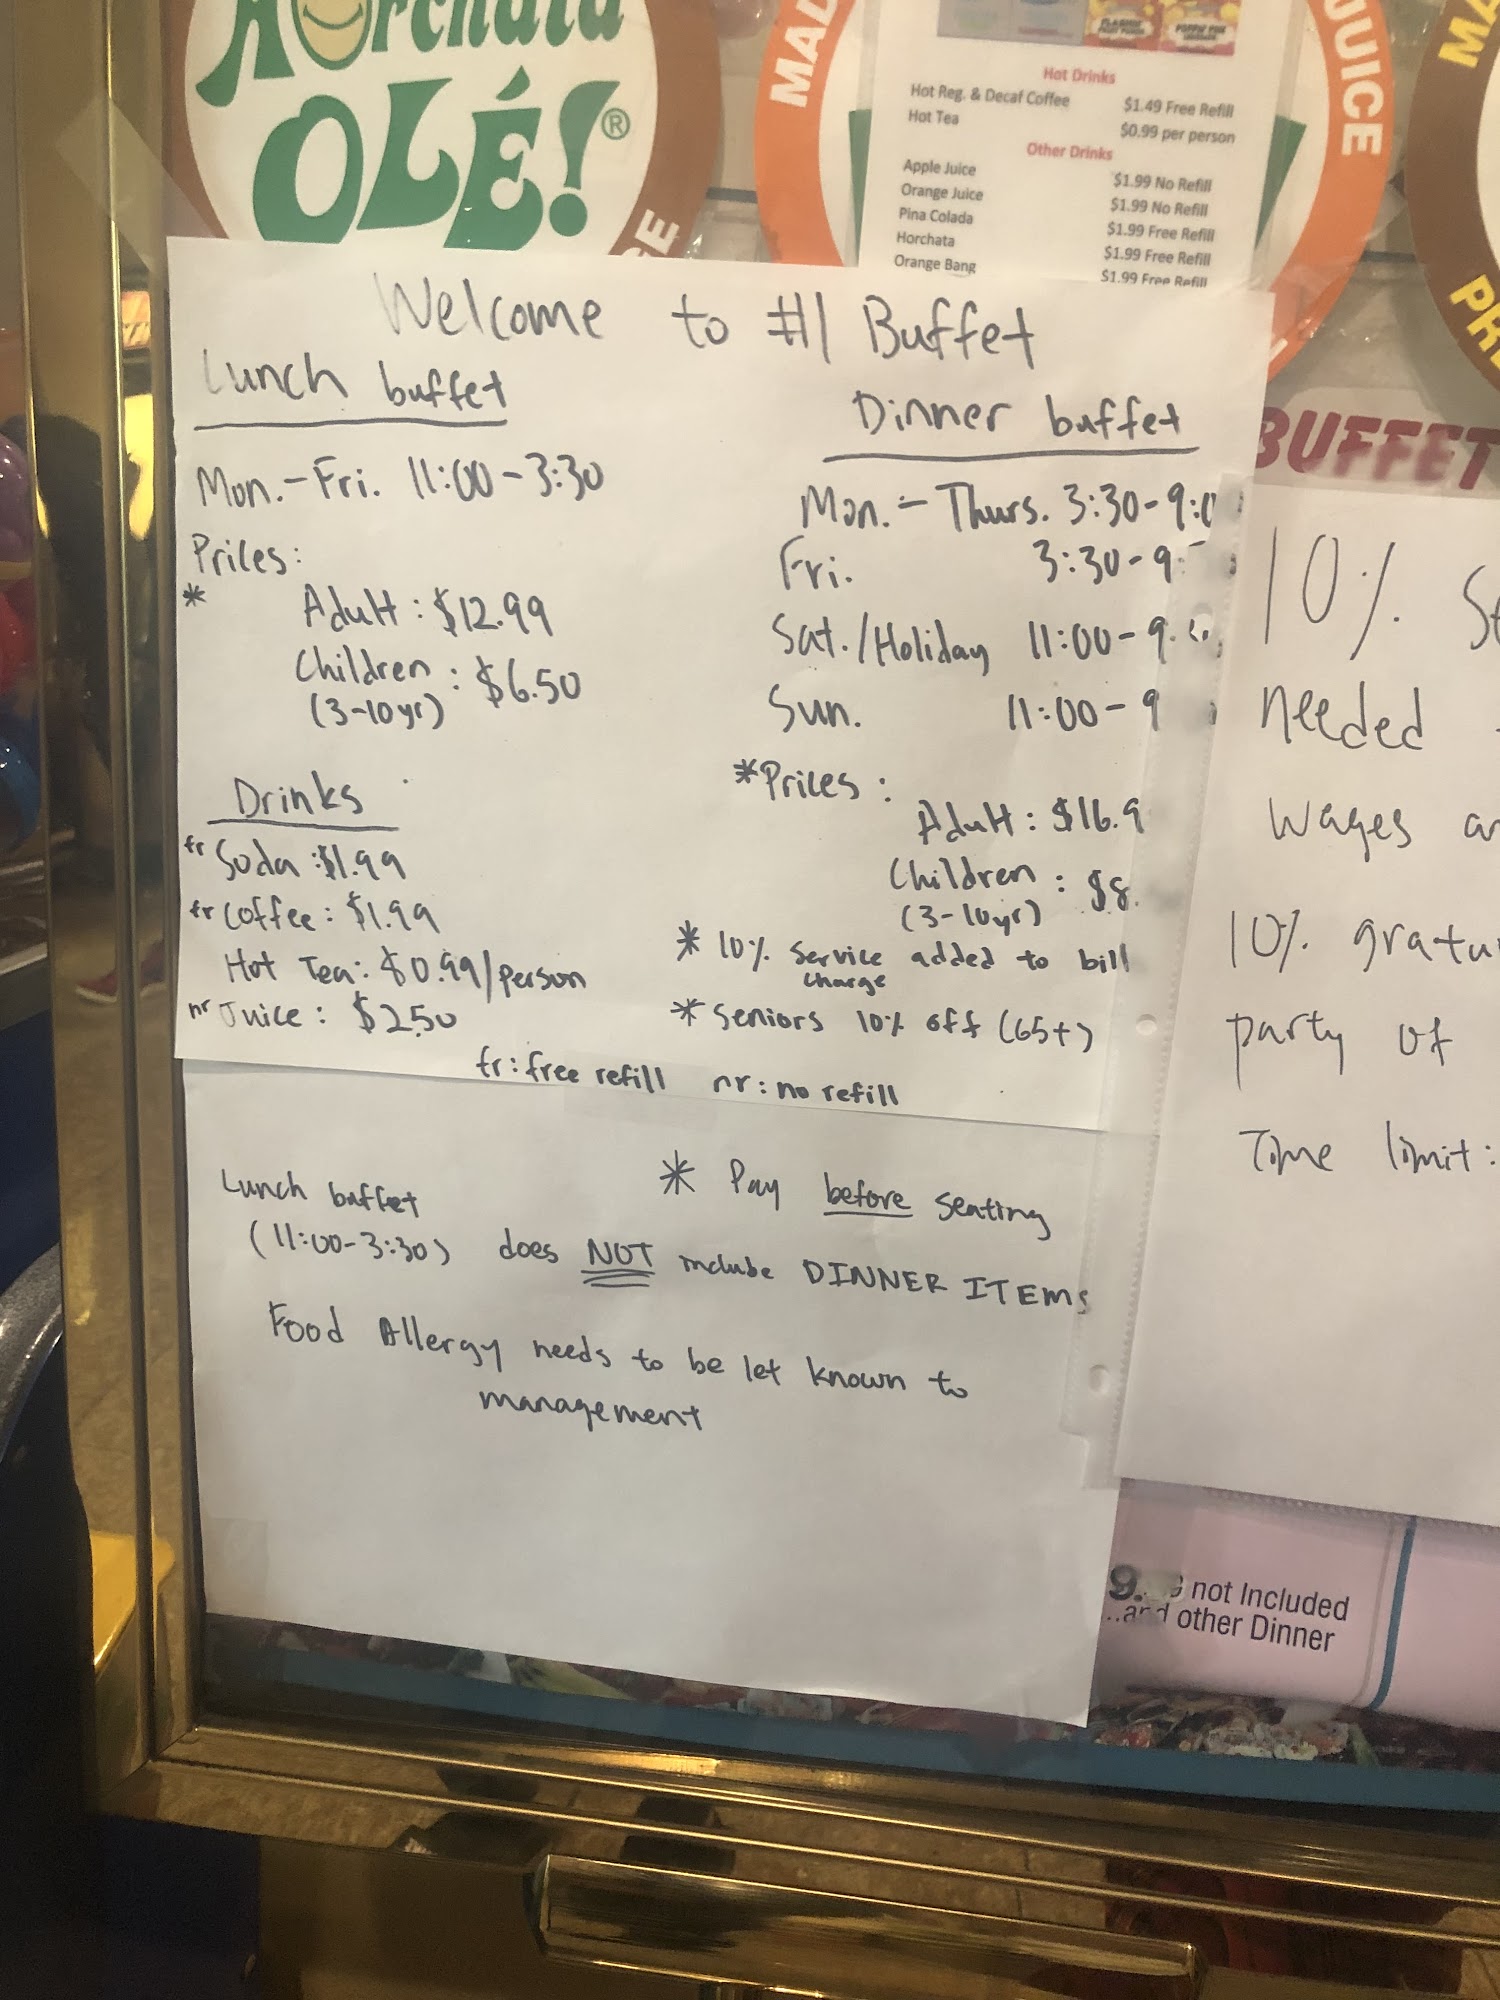 Horchata
OLÉ!®
MAD
JUICE
MA
PRE
Hot Drinks
Hot Reg. & Decaf Coffee $1.49 Free Refill
Hot Tea $0.99 per person
Other Drinks
Apple Juice $1.99 No Refill
Orange Juice $1.99 No Refill
Pina Colada $1.99 Free Refill
Horchata $1.99 Free Refill
Orange Bang $1.99 Free Refill
Welcome to #1 Buffet
Lunch buffet
Mon.-Fri. 11:00-3:30
Prices:
* Adult: $12.99
Children: $6.50
(3-10yr)
Drinks
fr Soda: $1.99
fr Coffee: $1.99
Hot Tea: $0.99/person
nr Juice: $2.50
fr: free refill nr: no refill
Dinner buffet
Mon.-Thurs. 3:30-9:0
Fri. 3:30-9:
Sat./Holiday 11:00-9.
Sun. 11:00-9
*Prices:
Adult: $16.9
Children: $8.
(3-10yr)
* 10% service charge added to bill
* Seniors 10% off (65+)
* Pay before seating
Lunch buffet
(11:00-3:30) does NOT include DINNER ITEMS
Food Allergy needs to be let known to
management
BUFFET
10%
needed
wages
10% gratu
party of
Time limit:
9. not Included
...and other Dinner